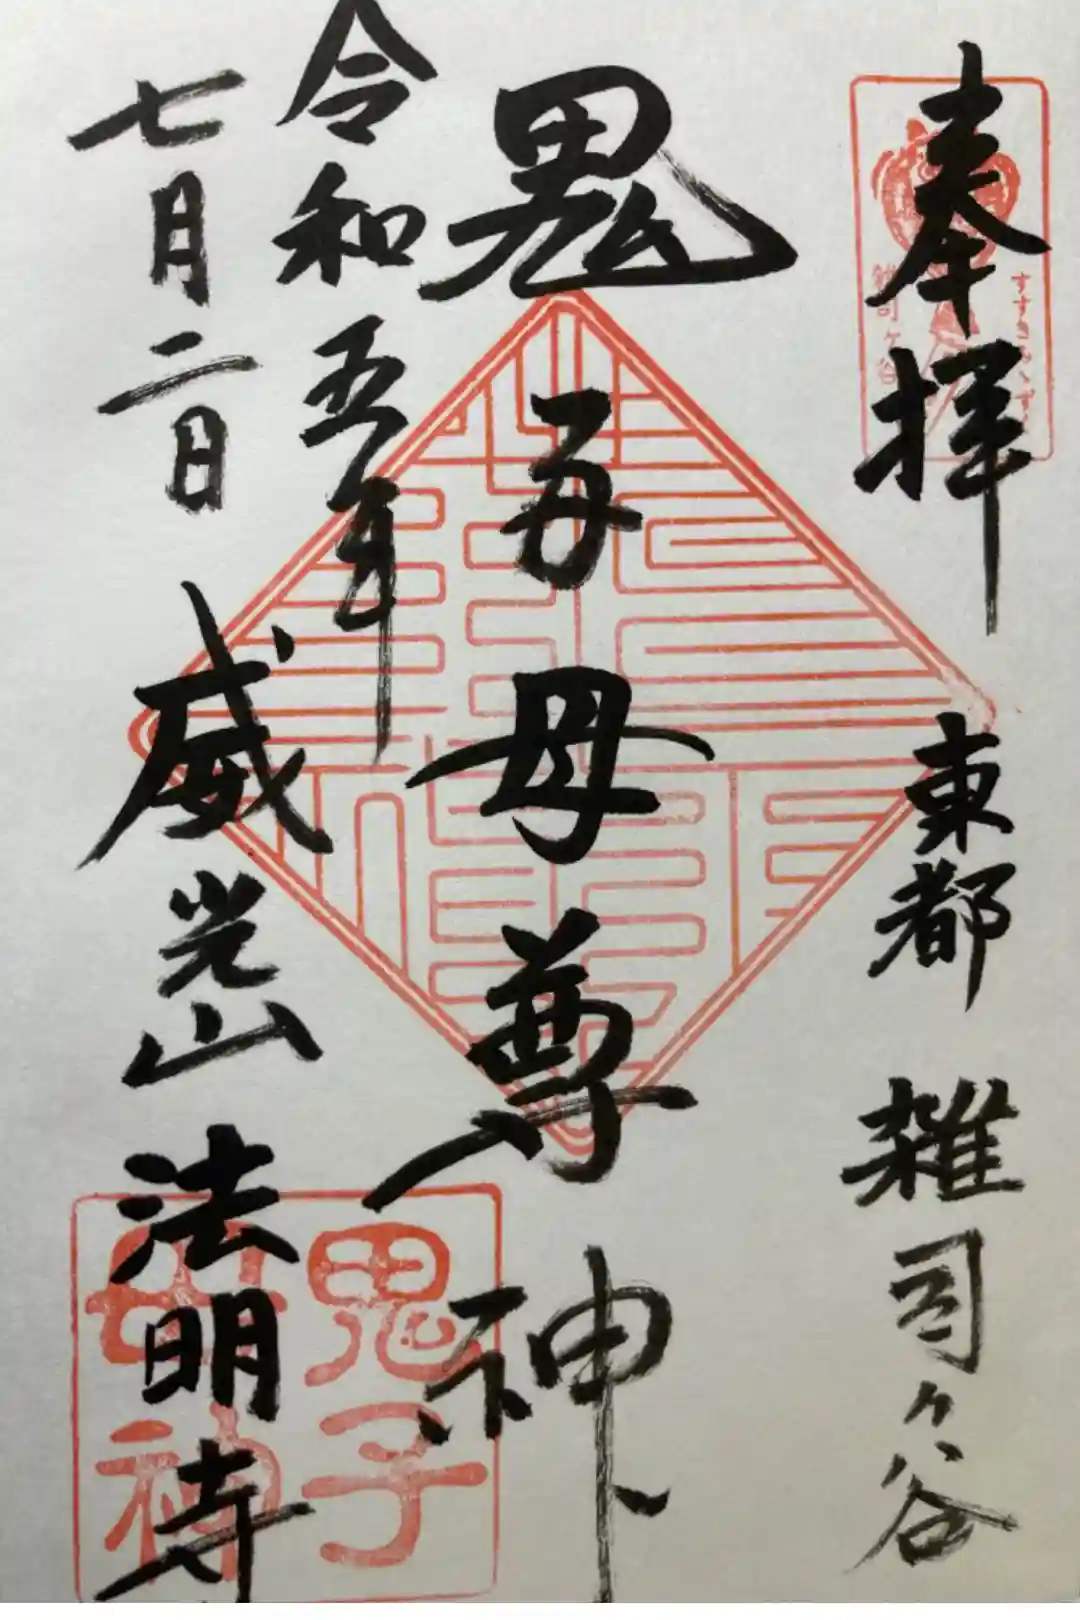 奉拝
東都
雑司ヶ谷
鬼子母尊神
令和五年
七月二日
威光山
法明寺
雑司ヶ谷
すすきみゝずく
鬼子
母神